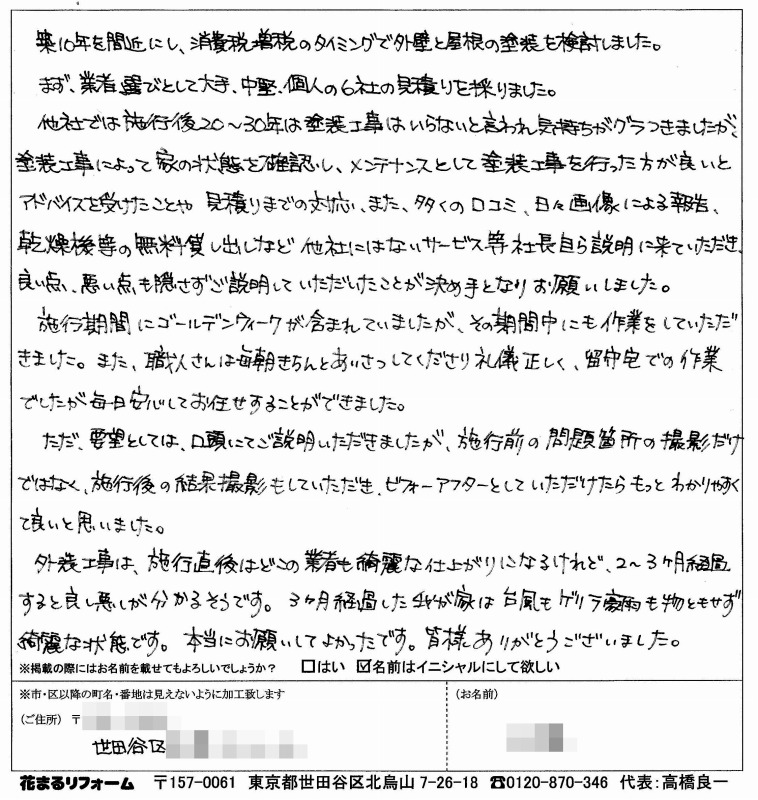 築10年を間近にし、消費税増税のタイミングで外壁と屋根の塗装を検討しました。
まず、業者選びとして大手、中堅、個人の6社の見積りを採りました。
他社では施行後20～30年は塗装工事はいらないと言われ気持ちがグラつきましたが、
塗装工事によって家の状態を確認し、メンテナンスとして塗装工事を行った方が良いと
アドバイスを受けたことや 見積りまでの対応、また、多くの口コミ、日々画像による報告、
乾燥後等の無料貸し出しなど 他社にはないサービス等社長自ら説明に来ていただき、
良い点、悪い点も隠さずご説明していただいたことが決め手となりお願いしました。
施行期間にゴールデンウィークが含まれていましたが、その期間中にも作業をしていただ
きました。また、職人さんは毎朝きちんとあいさつしてくださり礼儀正しく、留守宅での作業
でしたが毎日安心してお任せすることができました。
ただ、要望としては、口頭にてご説明いただきましたが、施行前の問題箇所の撮影だけ
ではなく、施行後の結果撮影もしていただき、ビフォーアフターとしていただけたらもっとわかりやすく
て良いと思いました。
外装工事は、施行直後はどこの業者も綺麗な仕上がりになるけれど、2～3ヶ月経過
すると良し悪しが分かるそうです。3ヶ月経過した我が家は台風もゲリラ豪雨も物ともせず
綺麗な状態です。本当にお願いしてよかったです。皆様ありがとうございました。
※掲載の際にはお名前を載せてもよろしいでしょうか? □はい ☑名前はイニシャルにして欲しい
※市・区以降の町名・番地は見えないように加工致します
(ご住所) 〒
世田谷区
(お名前)
花まるリフォーム 〒157-0061 東京都世田谷区北烏山 7-26-18 ☎0120-870-346 代表:高橋良一